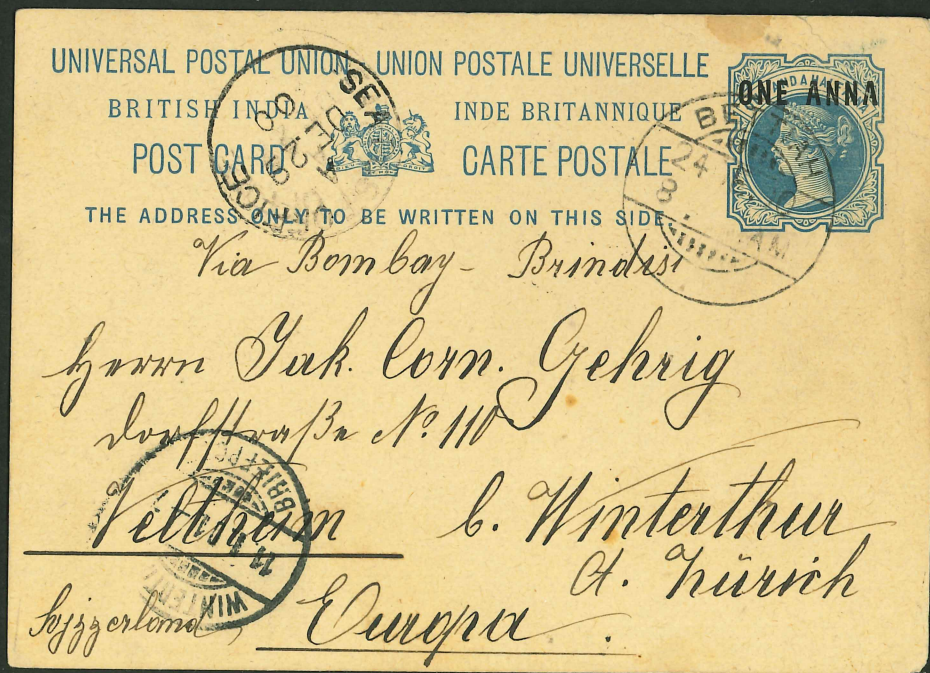 UNIVERSAL POSTAL UNION UNION POSTALE UNIVERSELLE
BRITISH INDIA INDE BRITANNIQUE
POST CARD CARTE POSTALE
THE ADDRESS ONLY TO BE WRITTEN ON THIS SIDE
ONE ANNA
SEA
24
8 AM
Via Bombay - Brindisi
Herrn Jak. Corn. Gehrig
Dorfstraße No. 110
Veltheim b. Winterthur
Ct. Zürich
Europa